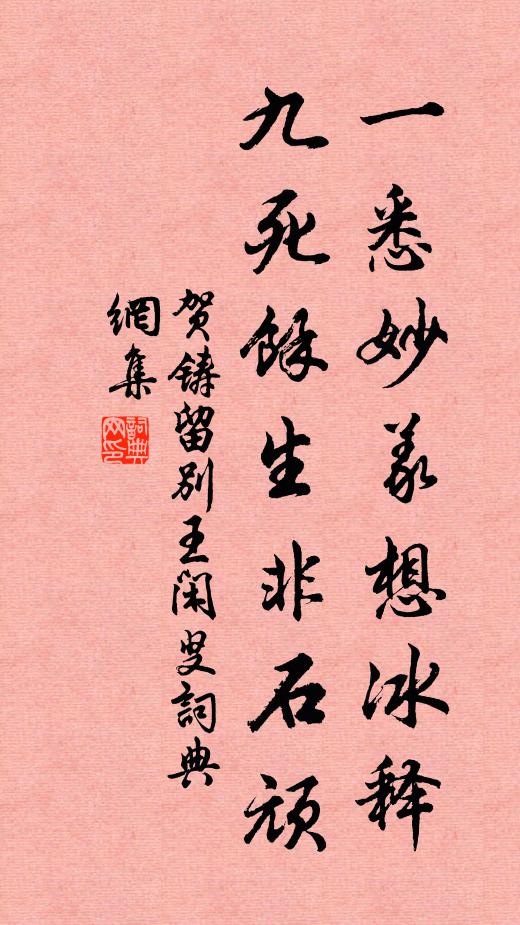 一悉妙义想冰释
九死餘生非石顽
贺铸留别王闲叟詞典
網集
詞典網印